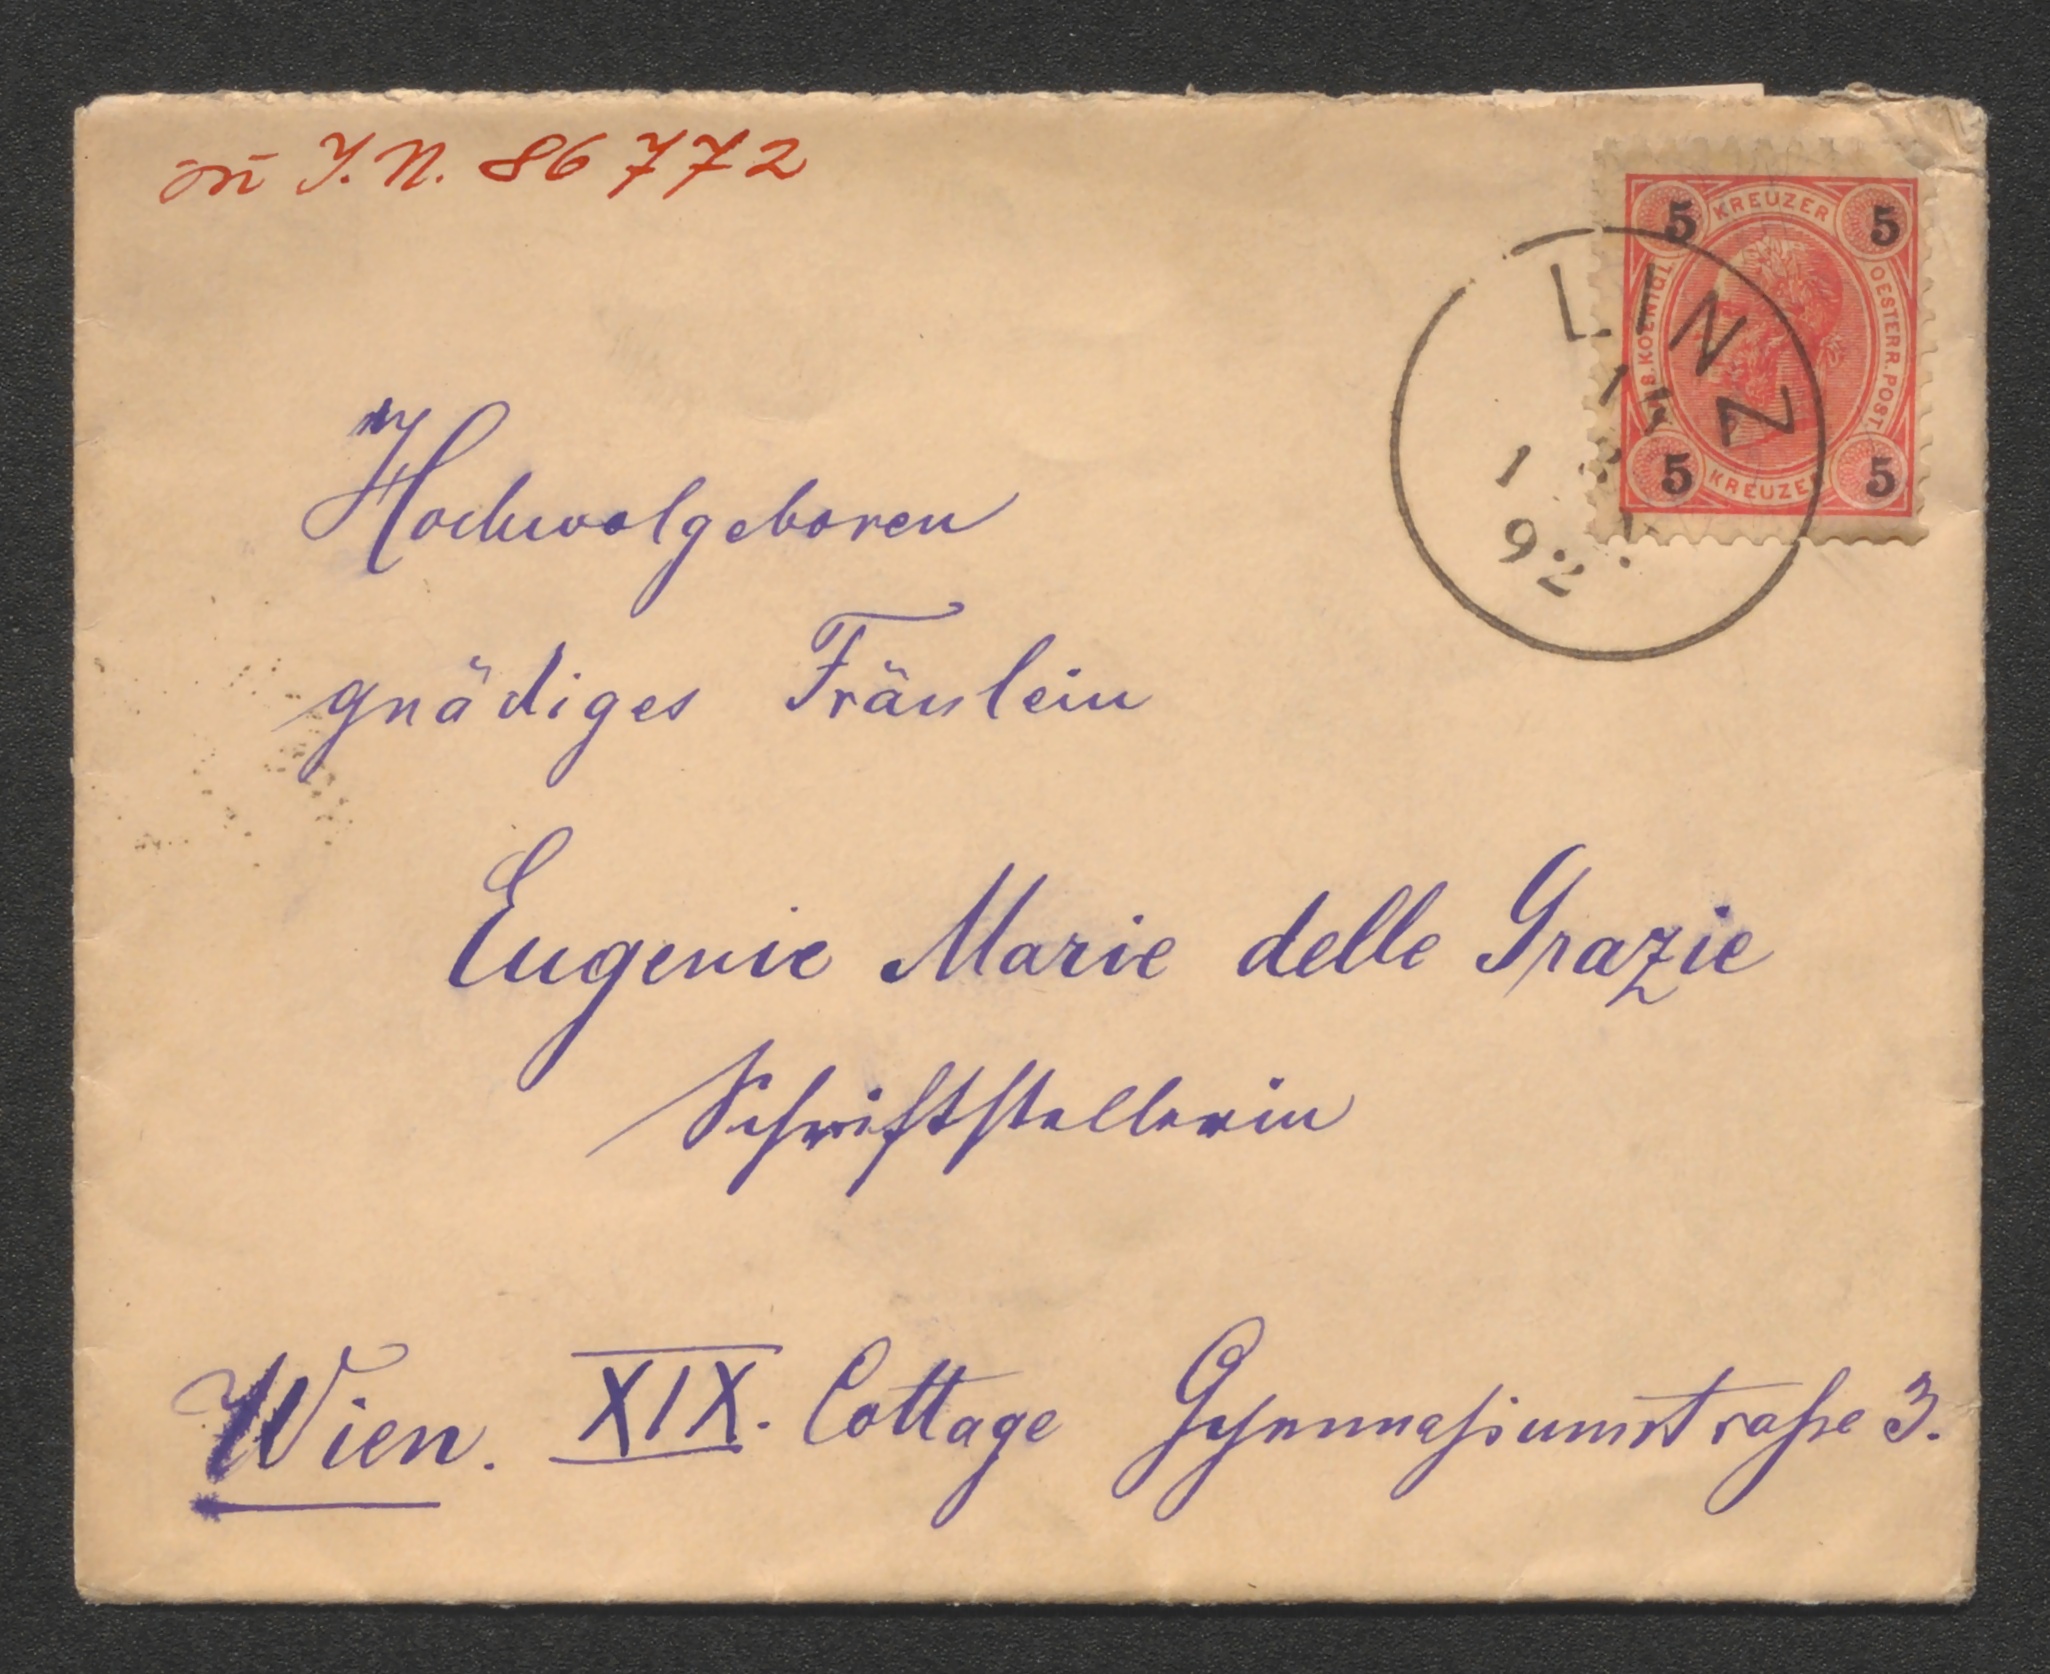 zu I.N. 86772
5 KREUZER 5
KOENIGL. OESTERR. POST.
5 KREUZER 5
LINZ
1
92
Hochwolgeboren
gnädiges Fräulein
Eugenie Marie delle Grazie
Schriftstellerin
Wien. XIX. Cottage Gymnasiumstraße 3.